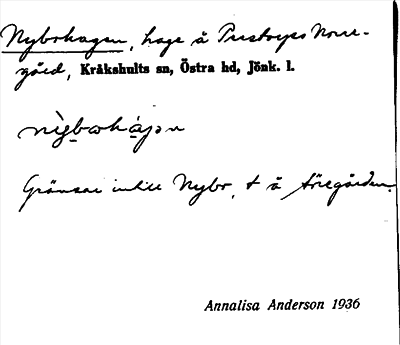 Nybrohagen, hage å Prästorps Norre-
gård, Kråkshults sn, Östra hd, Jönk. l.
Gränsar intill Nybro, t å Föregården.
Annalisa Anderson 1936